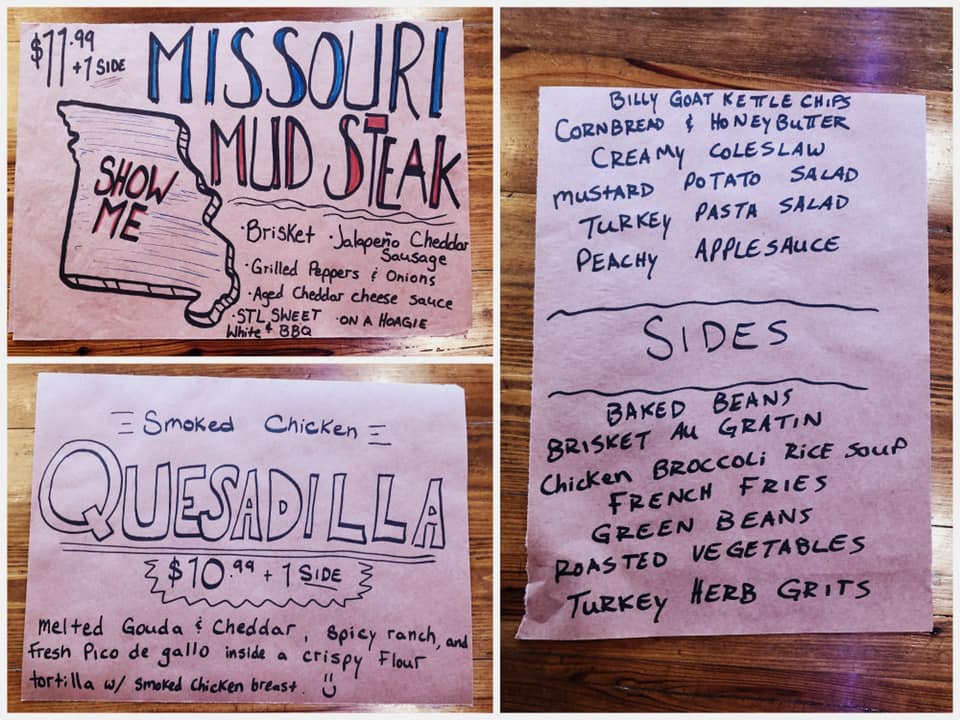 $11.99
+1 SIDE
MISSOURI
MUD STEAK
SHOW
ME
·Brisket ·Jalapeño Cheddar
Sausage
·Grilled Peppers & Onions
·Aged Cheddar cheese sauce
·STL SWEET ·ON A HOAGIE
White & BBQ
Smoked Chicken
QUESADILLA
$10.99 + 1 SIDE
Melted Gouda & Cheddar, spicy ranch, and
fresh Pico de gallo inside a crispy Flour
tortilla w/ smoked chicken breast.
BILLY GOAT KETTLE CHIPS
CORNBREAD & HONEY BUTTER
CREAMY COLESLAW
MUSTARD POTATO SALAD
TURKEY PASTA SALAD
PEACHY APPLESAUCE
SIDES
BAKED BEANS
BRISKET AU GRATIN
Chicken BROCCOLi RICE SOUP
FRENCH FRIES
GREEN BEANS
ROASTED VEGETABLES
TURKEY HERB GRITS